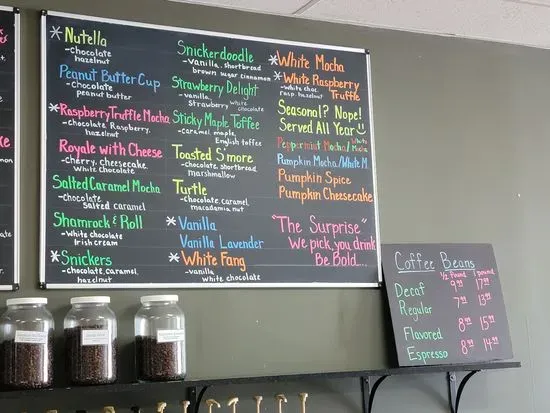 *Nutella
-chocolate
hazelnut
Peanut Butter Cup
-chocolate
peanut butter
*Raspberry Truffle Mocha
-chocolate, Raspberry,
hazelnut
Royale with Cheese
-cherry, cheesecake,
white chocolate
Salted Caramel Mocha
-chocolate
salted caramel
Shamrock & Roll
-white chocolate
Irish cream
*Snickers
-chocolate, caramel,
hazelnut
Snickerdoodle
-vanilla, shortbread
brown sugar cinnamon
Strawberry Delight
-vanilla, white
strawberry chocolate
Sticky Maple Toffee
-caramel, maple,
English toffee
Toasted S'more
-chocolate, shortbread,
marshmallow
Turtle
-chocolate, caramel,
macadamia nut
*Vanilla
Vanilla Lavender
*White Fang
-vanilla
white chocolate
*White Mocha
*White Raspberry
Truffle
-white choc.
rasp. hazelnut
Seasonal? Nope!
Served All Year
Peppermint Mocha/White Mocha
Pumpkin Mocha/White M.
Pumpkin Spice
Pumpkin Cheesecake
"The Surprise"
We pick you drink
Be Bold...
Coffee Beans
1/2 Pound 1 pound
Decaf 9.99 17.99
Regular 7.99 13.99
Flavored 8.99 15.99
Espresso 8.99 14.99